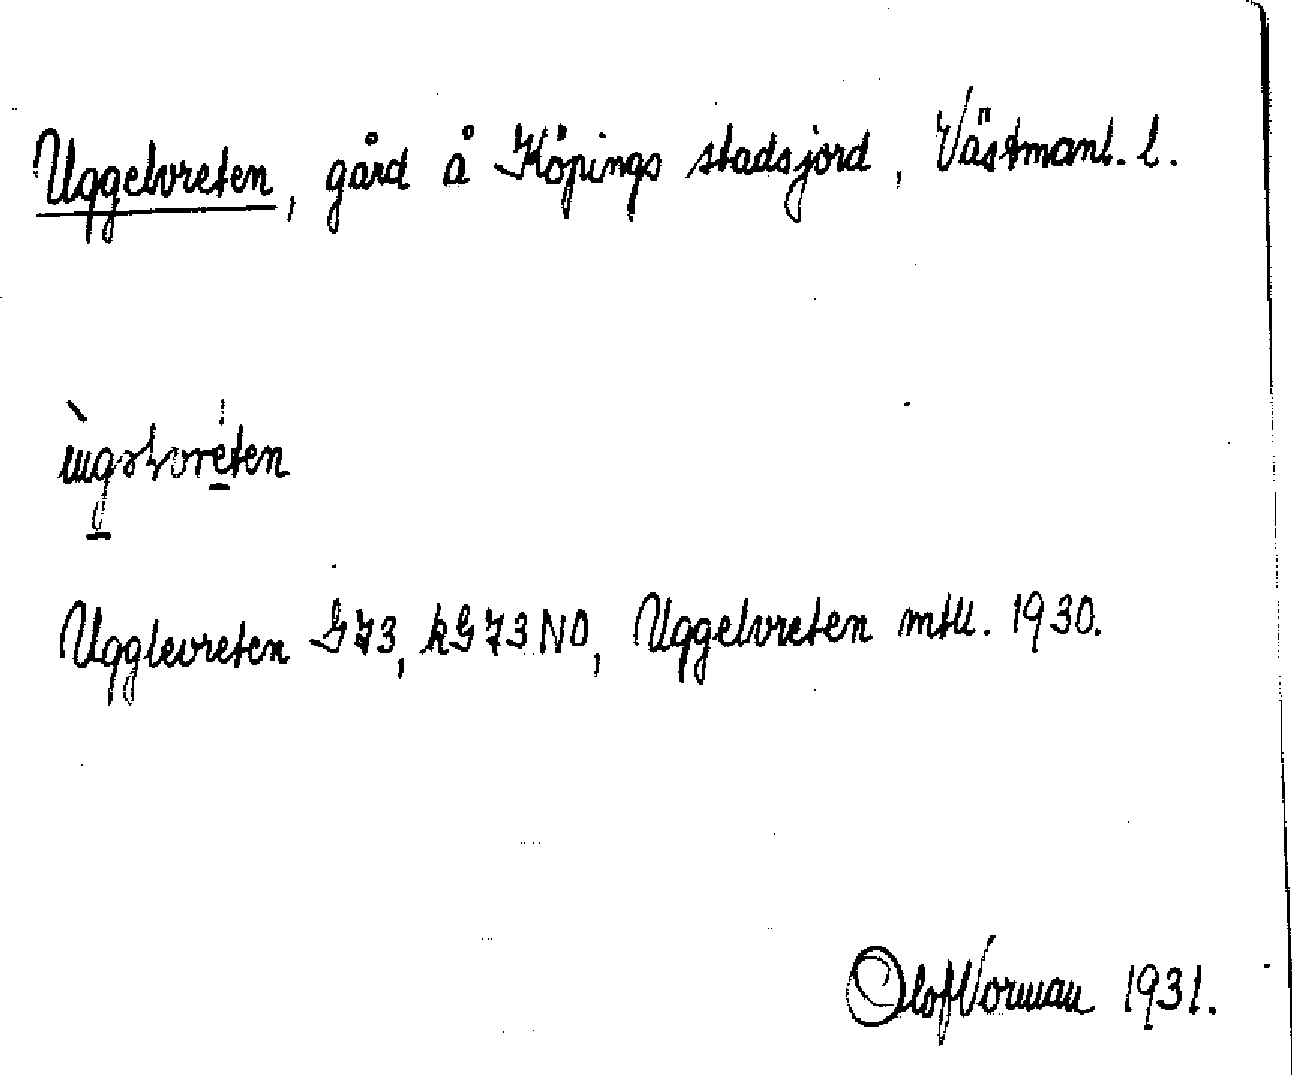 Uggelvreten, gård å Köpings stadsjord, Västmanl. l.
Ugglevreten G73, kG73NO, Uggelvreten mtll. 1930.
Olof Norman 1931.